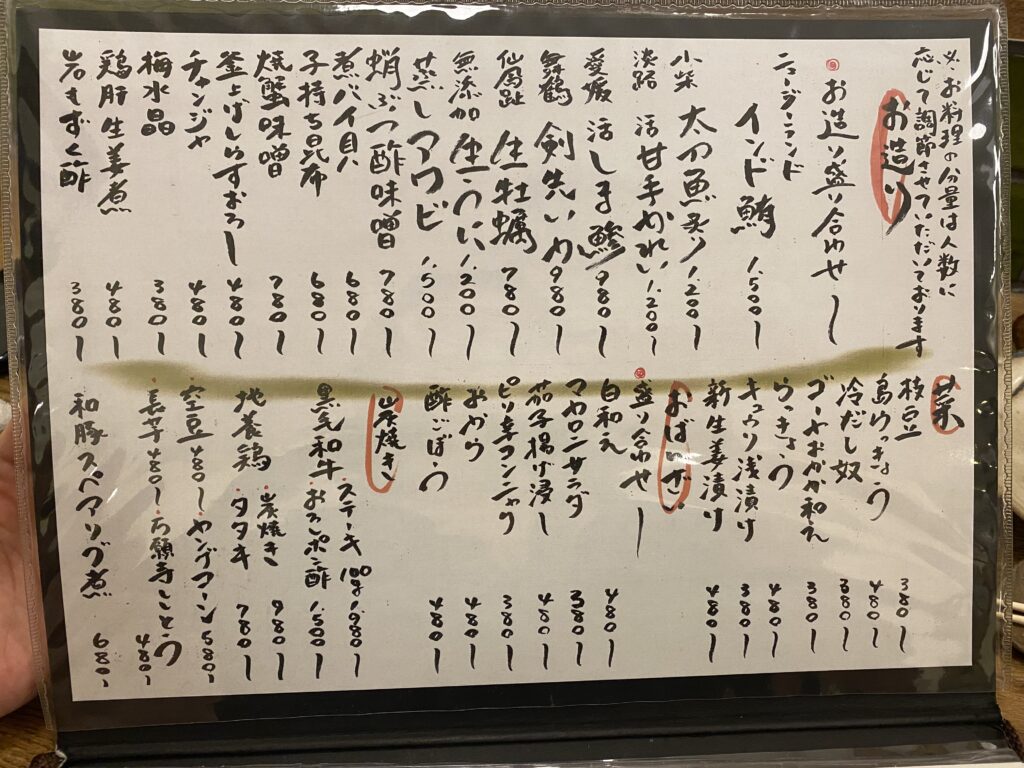 ※お料理の分量は人数に
応じて調節させていただいております
お造り
お造り盛り合わせ ー
ニュージーランド インド鮪 1,500ー
小柴 太刀魚炙り 1,200ー
淡路 活甘手かれい 1,200ー
愛媛 活しま鯵 980ー
舞鶴 剣先いか 980ー
仙鳳趾 生牡蠣 780ー
無添加 生うに 1,200ー
蒸しアワビ 1,500ー
蛸ぶつ酢味噌 780ー
煮バイ貝 680ー
子持ち昆布 680ー
焼蟹味噌 780ー
釜上げしらすおろし 480ー
チャンジャ 480ー
梅水晶 380ー
鶏肝生姜煮 480ー
岩もずく酢 380ー
菜
枝豆 380ー
島らっきょう 480ー
冷だし奴 380ー
ゴーヤおかか和え 380ー
らっきょう 480ー
キュウリ浅漬け 380ー
新生姜漬け 480ー
おばんざい
盛り合わせ ー
白和え 480ー
マカロニサラダ 380ー
茄子揚げ浸し 480ー
ピリ辛コンニャク 380ー
おから 480ー
酢ごぼう 480ー
炭焼き
黒毛和牛 ・ステーキ100g 1,980ー
・おろしポン酢 1,500ー
地養鶏 ・炭焼き 980ー
・タタキ 780ー
・空豆 480ー ・ヤングコーン 580ー
・長芋 480ー ・万願寺しとう 480ー
和豚スペアリブ煮 680ー